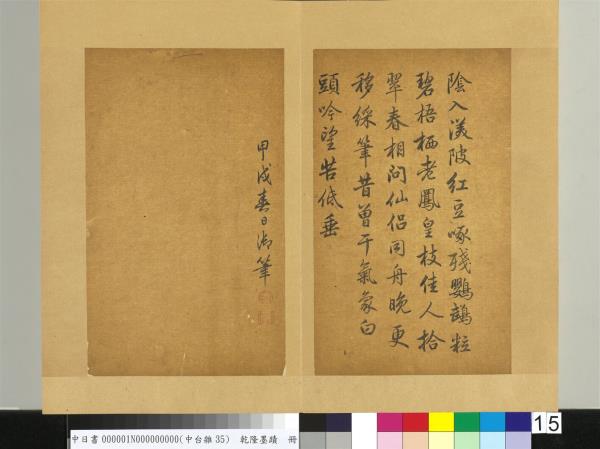 陰入渼陂紅豆啄殘鸚鵡粒
碧梧栖老鳳皇枝佳人拾
翠春相問仙侶同舟晚更
移綵筆昔曾干氣象白
頭吟望苦低垂
甲戌春日御筆
中日書 000001N000000000(中台雜 35) 乾隆墨蹟 冊
15